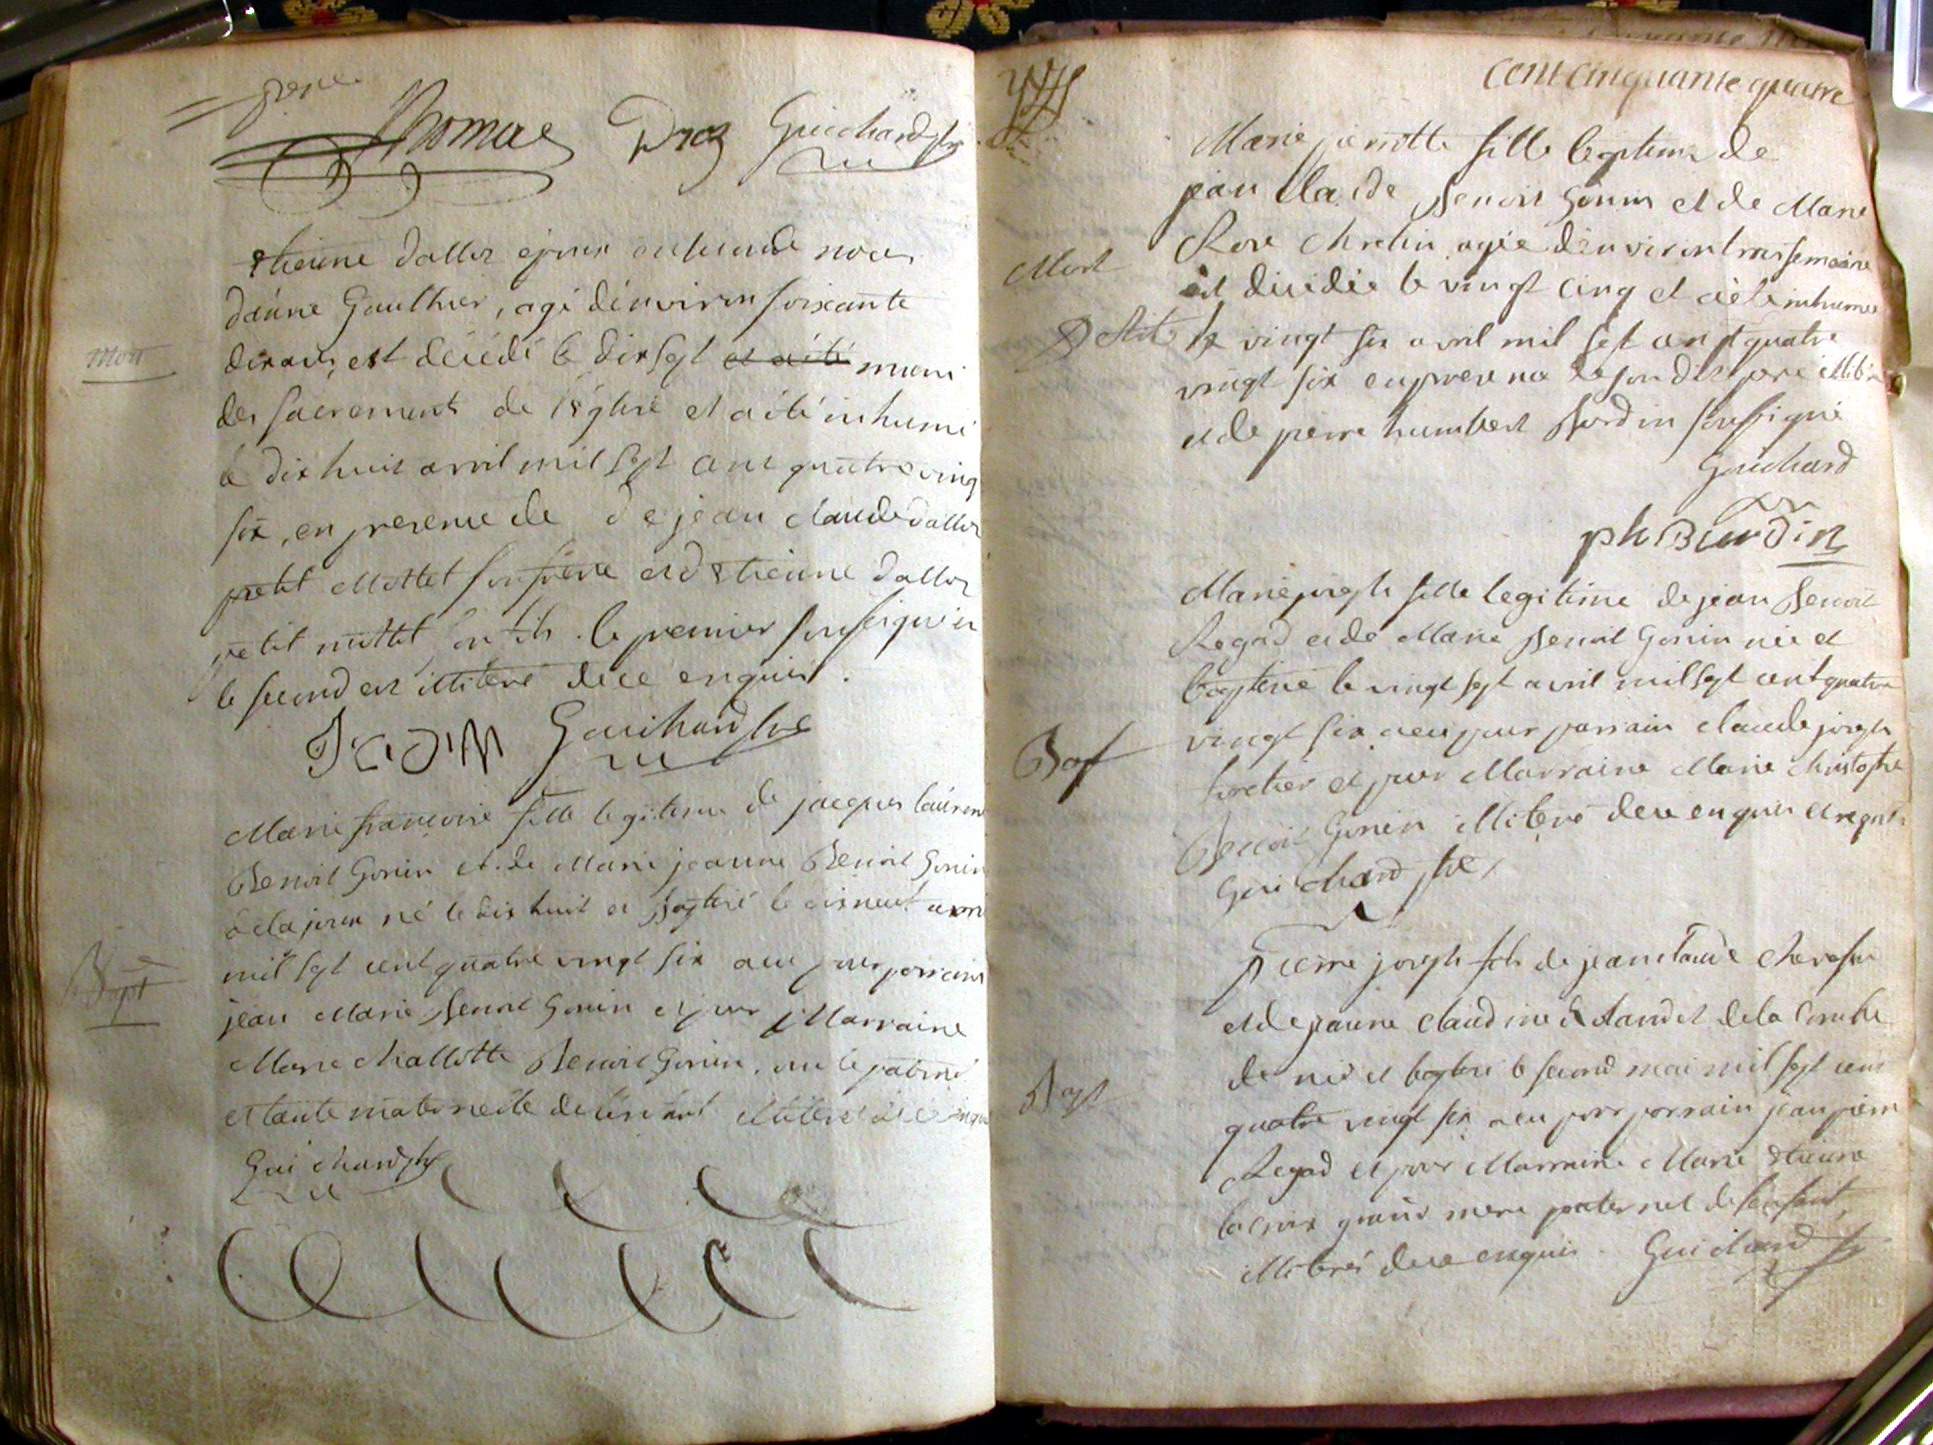 Thomas Droz Guichard ptre
Etienne dallos epoux en seconde noces
danne Gaulthier, agé denviron soixante
dix ans, est décédé le dix sept et a été muni
mort
des sacrements de l'église et a été inhumé
le dix huit avril mil sept cent quatre vingt
six, en presence de de jean claude dalloz
petit Mottet son frere et d'Etienne dalloz
petit mottet son fils. le premier soussigné et
le second est illiteré de ce enquis.
Guichard ptre
Marie francoise fille legitime de jacques laurent
Benoit Gonin et de Marie jeanne Benoit Gonin
né le dix huit et baptisé le dixneuf avril
mil sept cent quatre vingt six a eu pour parrain
Bapt
jean Marie Benoit Gonin et pour Marraine
Marie Benoit Gonin,
et tante maternelle de l'enfant illiterés de ce enquis
Guichard ptre
cent cinquante quatre
Marie pierrotte fille legitime de
jean claude Benoit Gonin et de Marie
Rose chretin agée d'environ trois semaine
Mort
est décédée le vingt cinq et a été inhumée
Petite
le vingt six avril mil sept cent quatre
vingt six en presence de son dit pere illiteré
et de pierre humbert Burdin soussigné
Guichard
ph Burdin
Marie joseph fille legitime de jean Benoit
Regad et de Marie Benoit Gonin née et
baptisée le vingt sept avril mil sept cent quatre
vingt six a eu pour parrain claude joseph
Bapt
et pour Marraine Marie christophe
Benoit Gonin illiteré de ce enquis et requis
Guichard ptre
Pierre joseph fils de jean claude
et de jeanne claudine de la Combe
né et baptisé le second mai mil sept cent
Bapt
quatre vingt six a eu pour parrain jean pierre
Regad et pour Marraine Marie Etienne
lacroix grand mere paternel de l'enfant,
illiterés de ce enquis. Guichard ptre